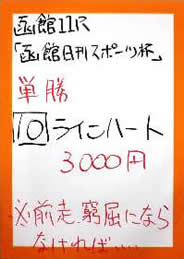 函館11R
「函館日刊スポーツ杯」
単勝
10 ラインハート
3000円
※前走、窮屈になら
なければ‥‥